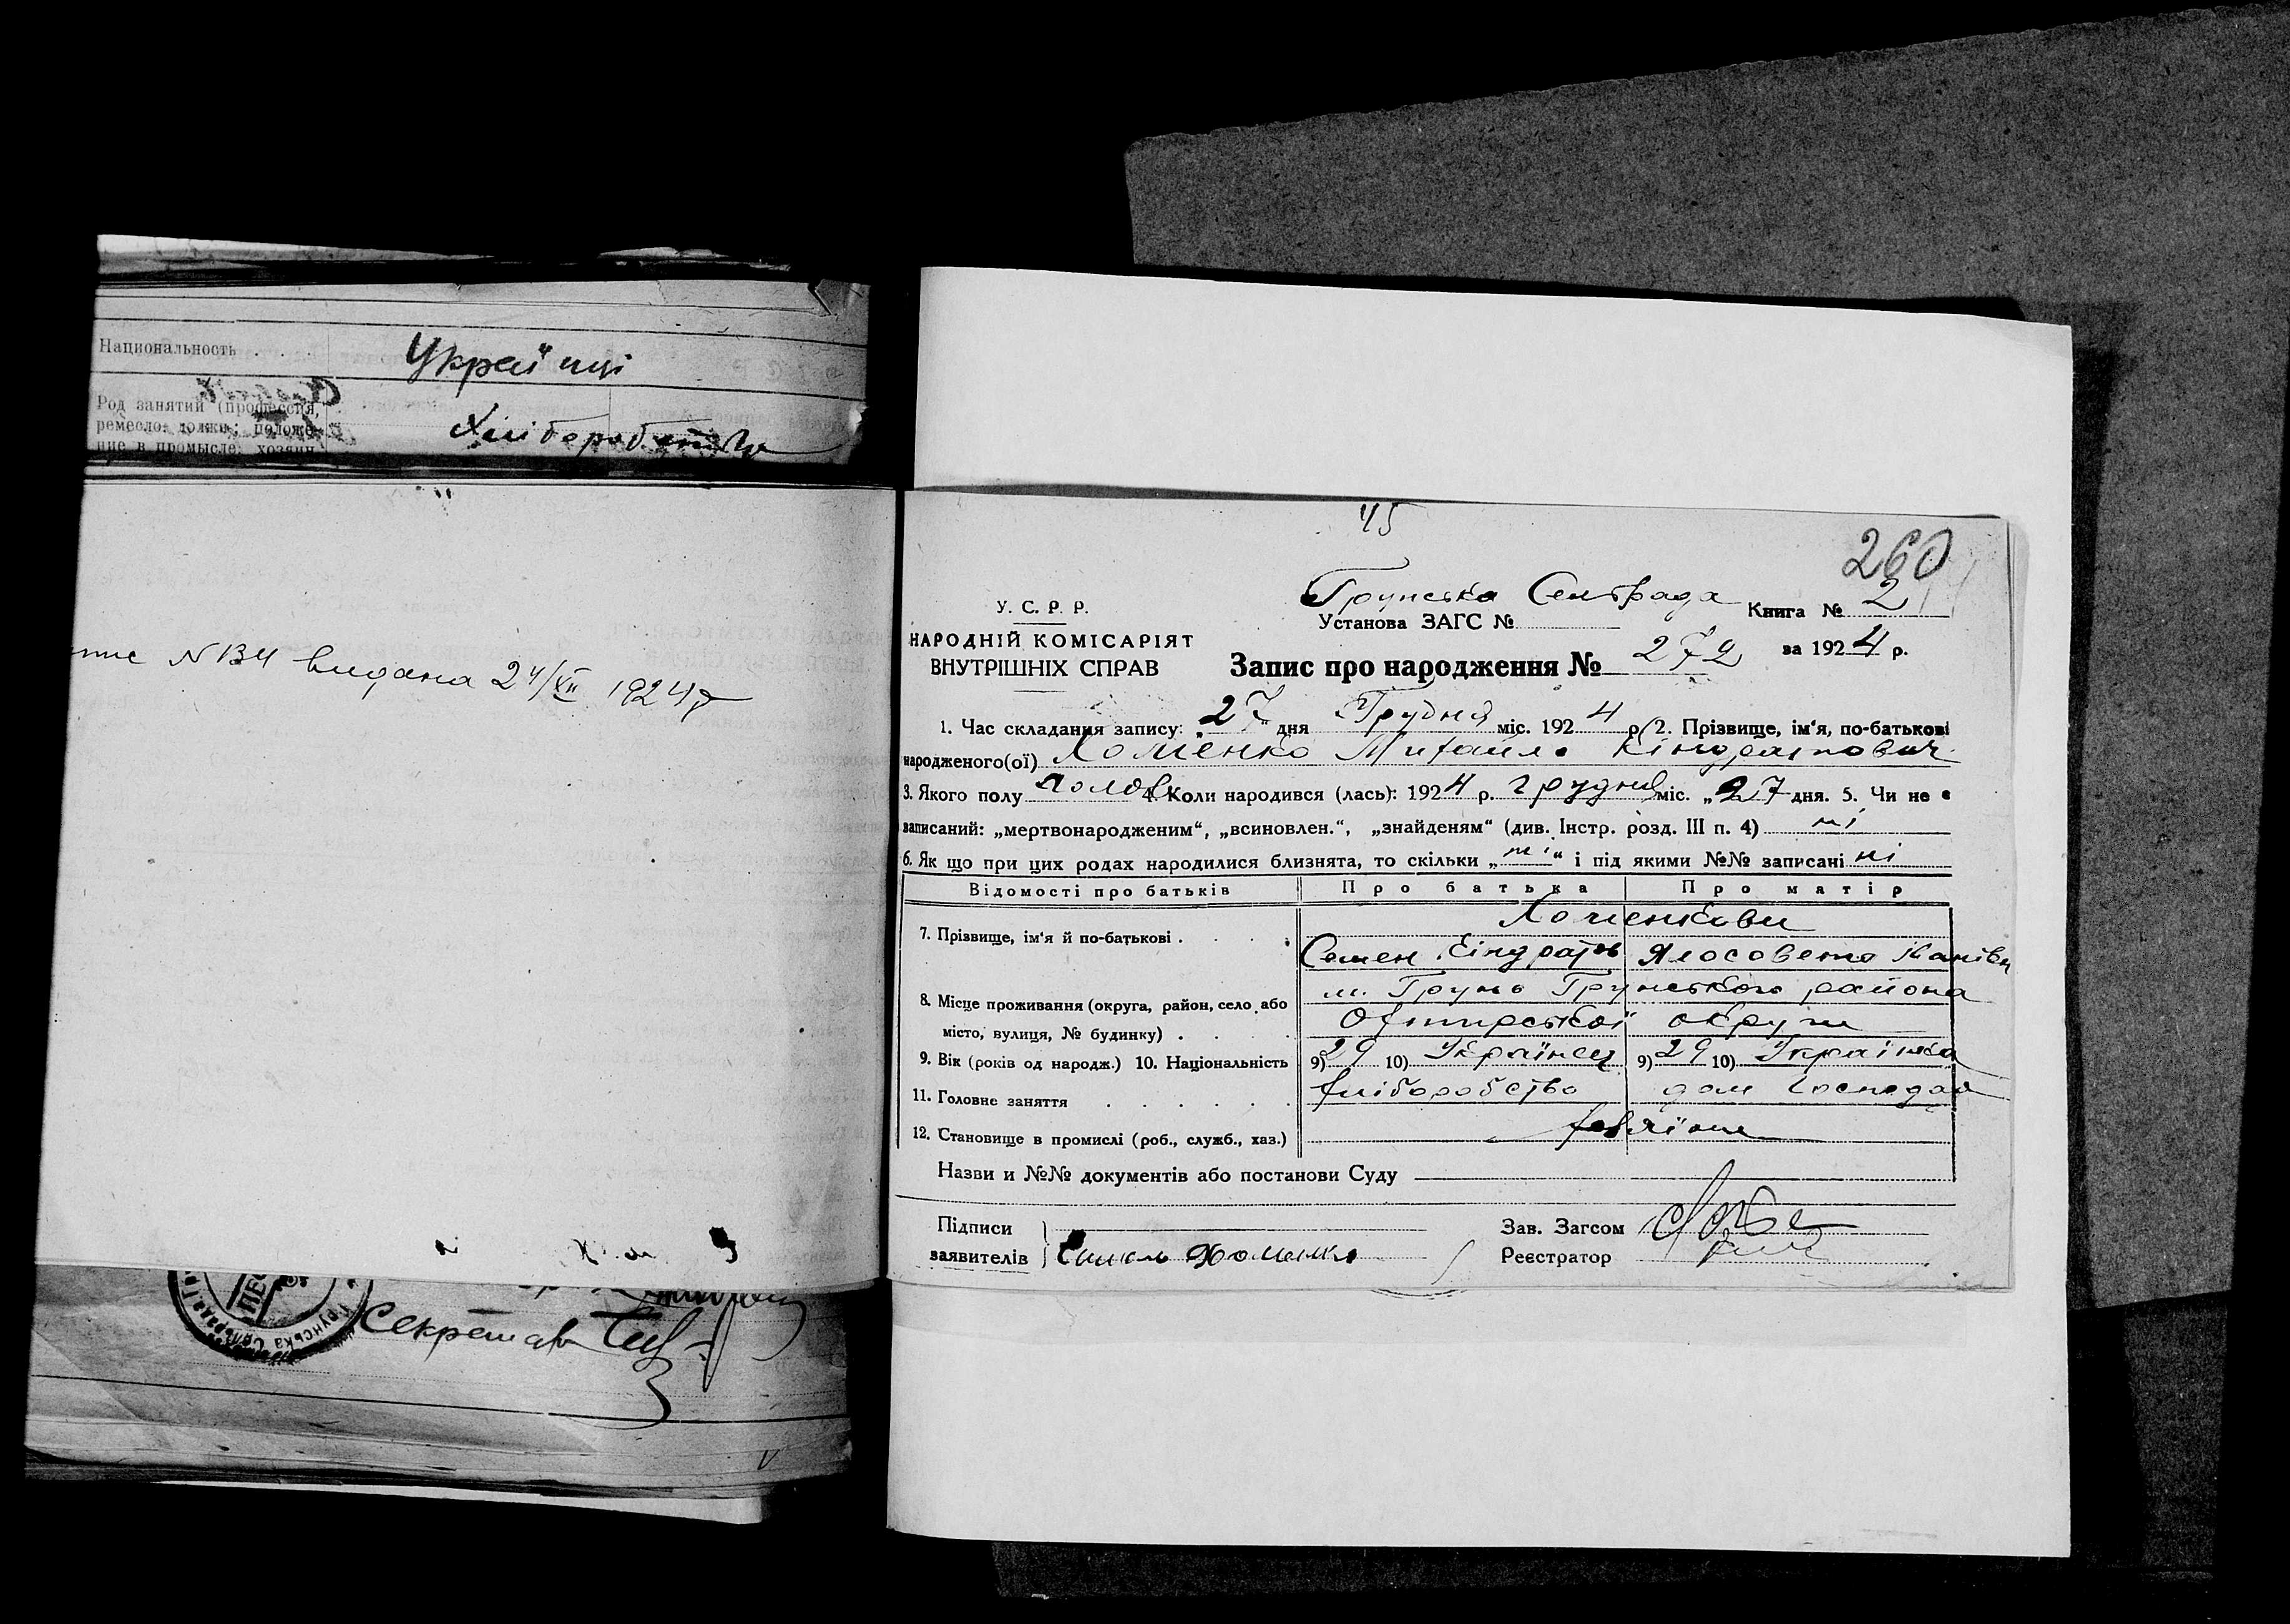 Национальность . . .
Українці
Род занятий (профессия,
ремесло, должн; положе-
ние в промысле: хозяин
Хліборобство
N 134 видана 24/XII 1924 р
Секретар
45
260
Грунська Сельрада
У. С. Р. Р.
Установа ЗАГС № Книга № 2
НАРОДНІЙ КОМІСАРІЯТ
ВНУТРІШНІХ СПРАВ
Запис про народження № 272 за 1924 р.
1. Час складання запису: „27" дня Грудня міс. 1924 р. 2. Прізвище, ім'я, по-батькові
народженого(ої) Хоменко Михайло Кіндратович
3. Якого полу чолов. 4. Коли народився (лась): 1924 р. грудня міс. „27 дня. 5. Чи не є
записаний: „мертвонародженим", „всиновлен.", „знайденям" (див. Інстр. розд. III п. 4) ні
6. Як що при цих родах народилися близнята, то скільки „ні" і під якими №№ записані ні
Відомості про батьків Про батька Про матір
Хоменкови
7. Прізвище, ім'я й по-батькові . . . .
Семен Кіндратов
8. Місце проживання (округа, район, село або
місто, вулиця, № будинку) . . . .
м. Грунь Грунського района
Охтирської округи
9. Вік (років од народж.) 10. Національність 9) 29 10) Українец 9) 29 10) Українка
11. Головне заняття . . . . . . хліборобство дом господар
12. Становище в промислі (роб., служб., хаз.) хазяїни
Назви и №№ документів або постанови Суду
Підписи
заявителів
Хоменко
Зав. Загсом
Реєстратор